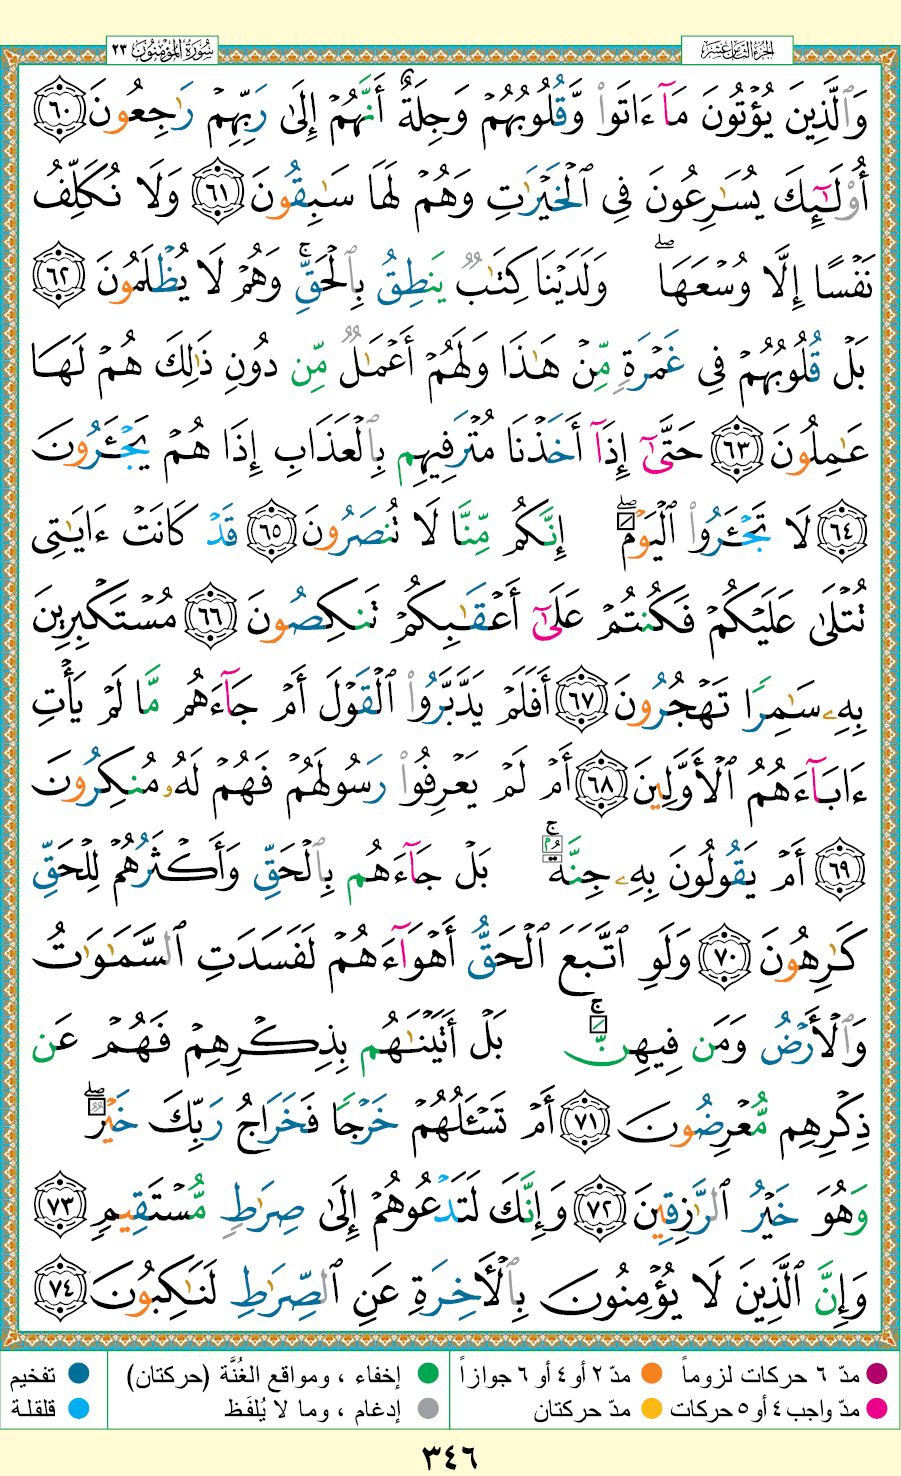 الجزء الثامن عشر
سُورَةُ المُؤْمِنُون ٢٣
وَٱلَّذِينَ يُؤْتُونَ مَآ ءَاتَوا۟ وَّقُلُوبُهُمْ وَجِلَةٌ أَنَّهُمْ إِلَىٰ رَبِّهِمْ رَٰجِعُونَ ٦٠
أُو۟لَـٰٓئِكَ يُسَـٰرِعُونَ فِى ٱلْخَيْرَٰتِ وَهُمْ لَهَا سَـٰبِقُونَ ٦١ وَلَا نُكَلِّفُ
نَفْسًا إِلَّا وُسْعَهَا ۖ وَلَدَيْنَا كِتَـٰبٌ يَنطِقُ بِٱلْحَقِّ ۚ وَهُمْ لَا يُظْلَمُونَ ٦٢
بَلْ قُلُوبُهُمْ فِى غَمْرَةٍ مِّنْ هَـٰذَا وَلَهُمْ أَعْمَـٰلٌ مِّن دُونِ ذَٰلِكَ هُمْ لَهَا
عَـٰمِلُونَ ٦٣ حَتَّىٰٓ إِذَآ أَخَذْنَا مُتْرَفِيهِم بِٱلْعَذَابِ إِذَا هُمْ يَجْـَٔرُونَ
٦٤ لَا تَجْـَٔرُوا۟ ٱلْيَوْمَ ۖ إِنَّكُم مِّنَّا لَا تُنصَرُونَ ٦٥ قَدْ كَانَتْ ءَايَـٰتِى
تُتْلَىٰ عَلَيْكُمْ فَكُنتُمْ عَلَىٰٓ أَعْقَـٰبِكُمْ تَنكِصُونَ ٦٦ مُسْتَكْبِرِينَ
بِهِۦ سَـٰمِرًا تَهْجُرُونَ ٦٧ أَفَلَمْ يَدَّبَّرُوا۟ ٱلْقَوْلَ أَمْ جَآءَهُم مَّا لَمْ يَأْتِ
ءَابَآءَهُمُ ٱلْأَوَّلِينَ ٦٨ أَمْ لَمْ يَعْرِفُوا۟ رَسُولَهُمْ فَهُمْ لَهُۥ مُنكِرُونَ
٦٩ أَمْ يَقُولُونَ بِهِۦ جِنَّةٌۢ ۚ بَلْ جَآءَهُم بِٱلْحَقِّ وَأَكْثَرُهُمْ لِلْحَقِّ
كَـٰرِهُونَ ٧٠ وَلَوِ ٱتَّبَعَ ٱلْحَقُّ أَهْوَآءَهُمْ لَفَسَدَتِ ٱلسَّمَـٰوَٰتُ
وَٱلْأَرْضُ وَمَن فِيهِنَّ ۚ بَلْ أَتَيْنَـٰهُم بِذِكْرِهِمْ فَهُمْ عَن
ذِكْرِهِم مُّعْرِضُونَ ٧١ أَمْ تَسْـَٔلُهُمْ خَرْجًا فَخَرَاجُ رَبِّكَ خَيْرٌ ۖ
وَهُوَ خَيْرُ ٱلرَّٰزِقِينَ ٧٢ وَإِنَّكَ لَتَدْعُوهُمْ إِلَىٰ صِرَٰطٍ مُّسْتَقِيمٍ ٧٣
وَإِنَّ ٱلَّذِينَ لَا يُؤْمِنُونَ بِٱلْـَٔاخِرَةِ عَنِ ٱلصِّرَٰطِ لَنَـٰكِبُونَ ٧٤
مدّ ٦ حركات لزوماً
مدّ ٢ أو ٤ أو ٦ جوازاً
إخفاء ، ومواقع الغُنَّة (حركتان)
تفخيم
مدّ واجب ٤ أو ٥ حركات
مدّ حركتان
إدغام ، وما لا يُلفَظ
قلقلة
٣٤٦